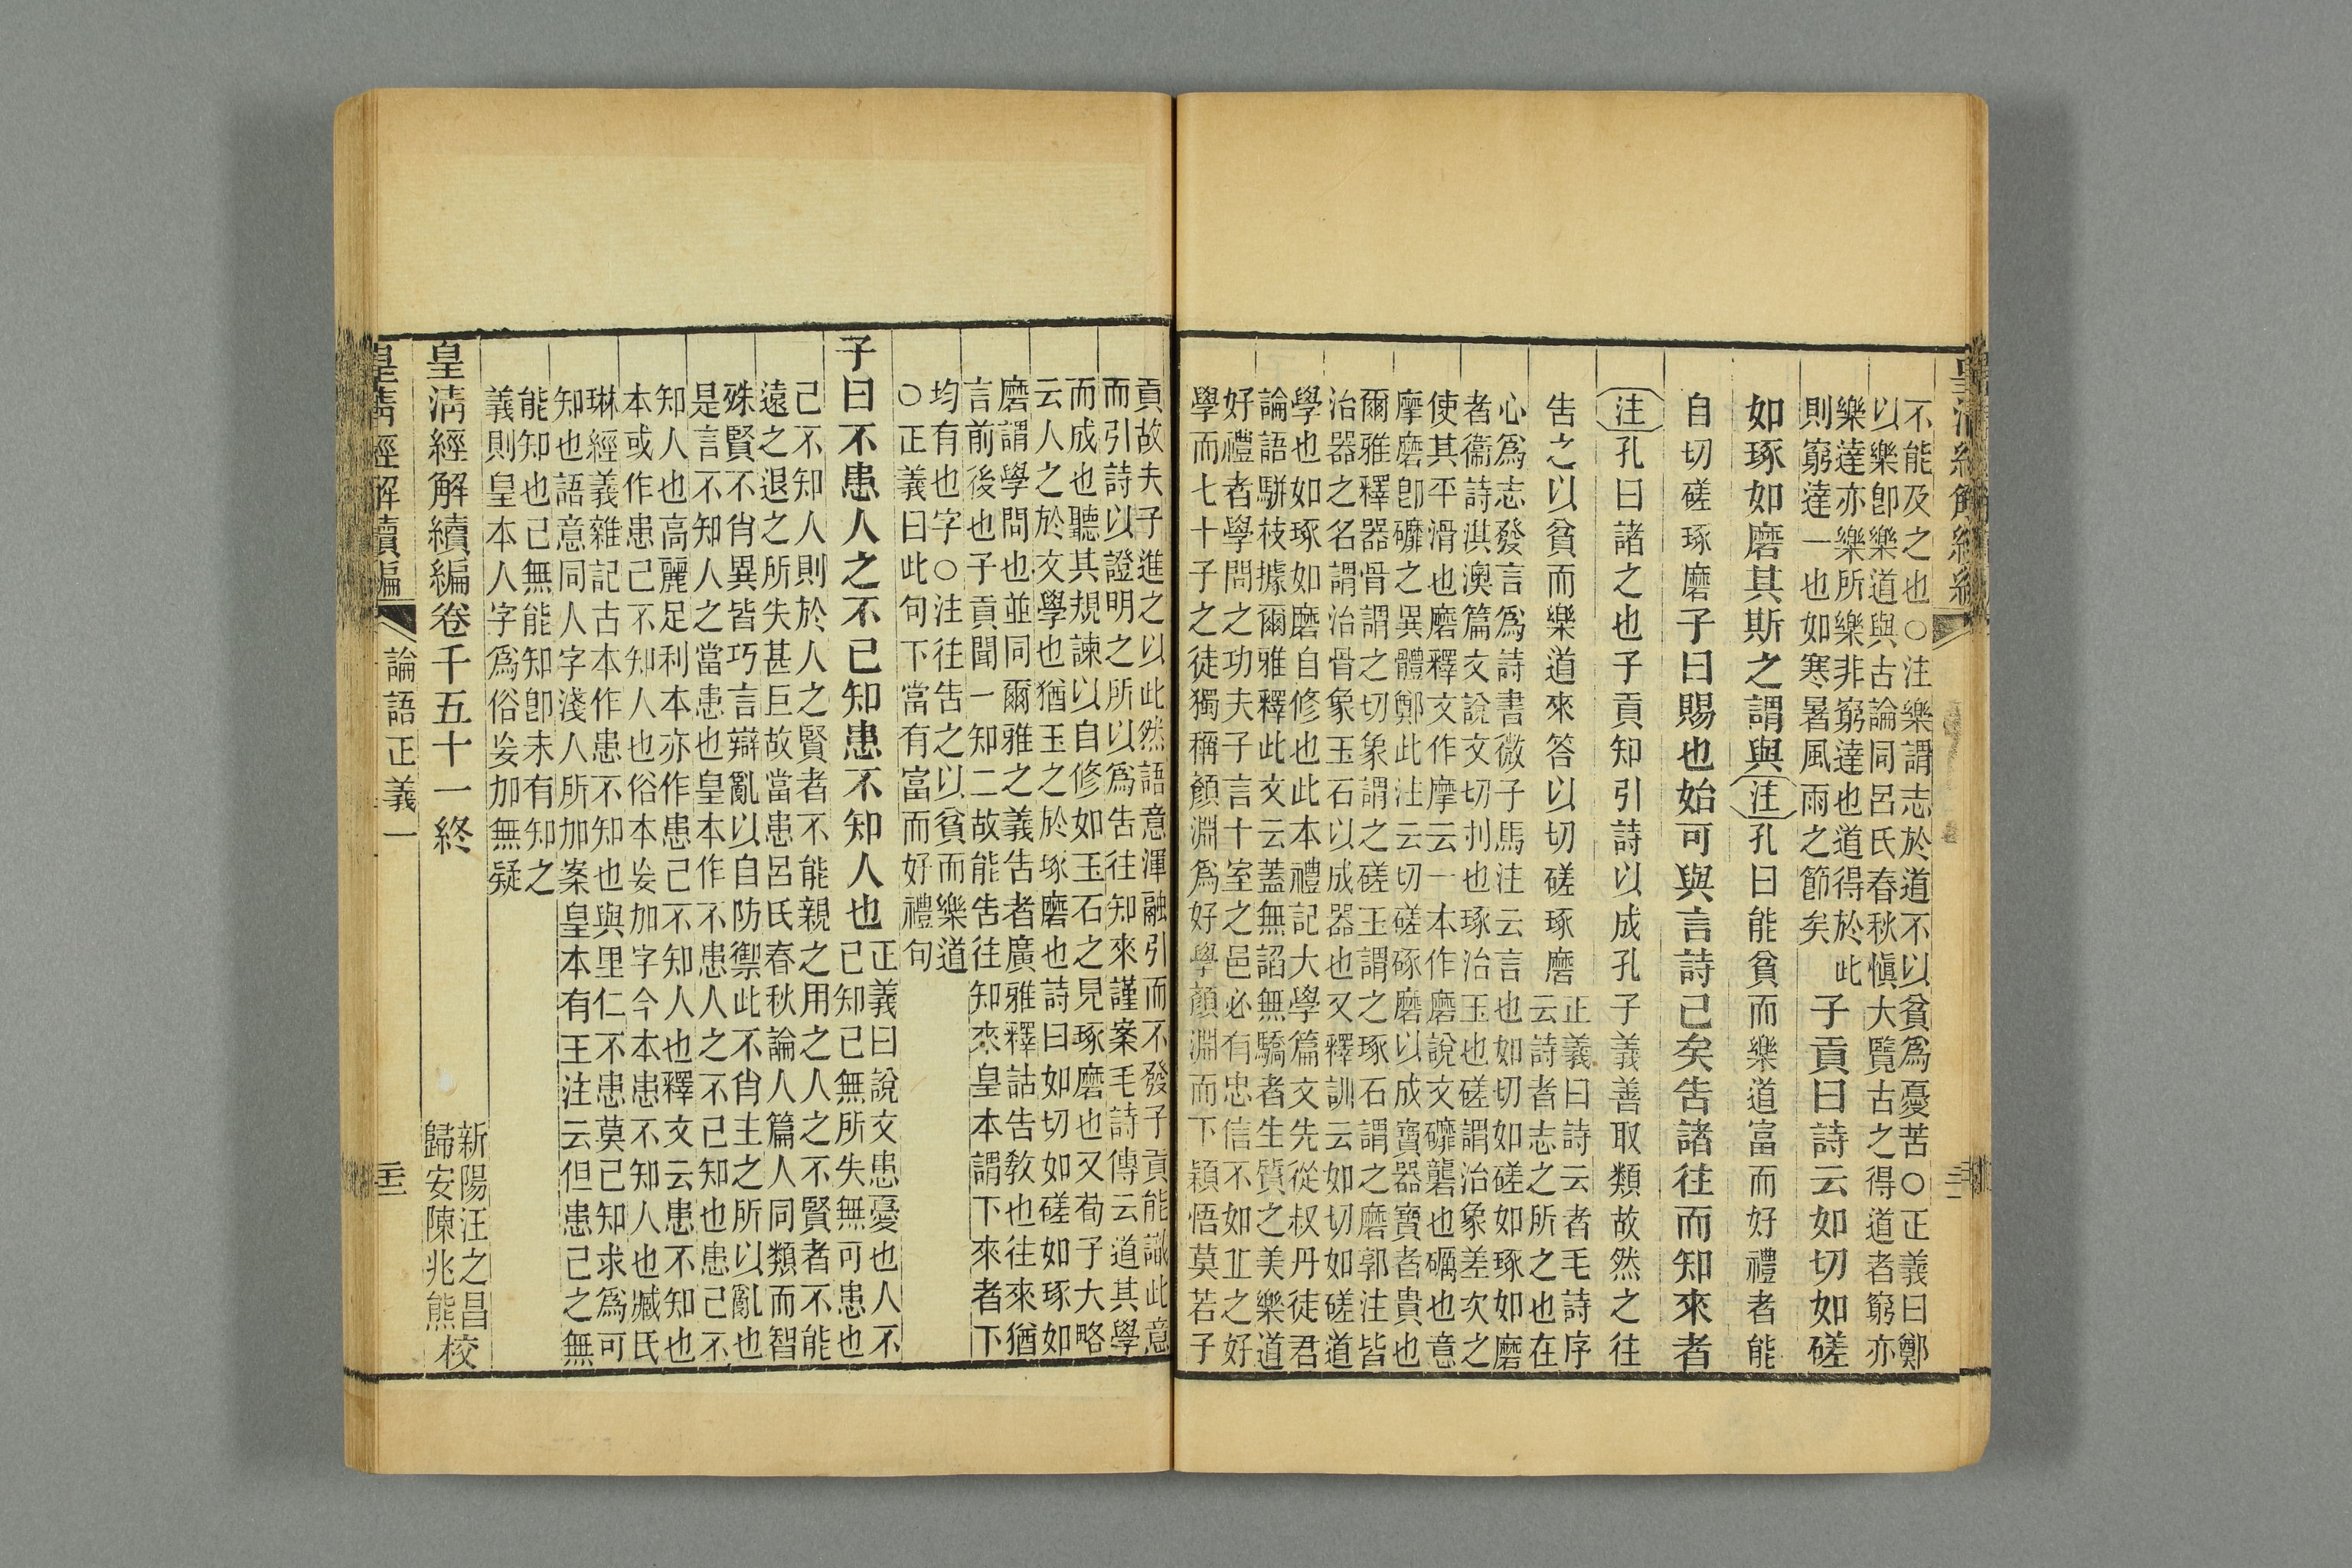 皇清經解續編
不能及之也○注樂謂志於道不以貧爲憂苦○正義曰鄭
以樂卽樂道與古論同呂氏春秋愼大覽古之得道者窮亦
樂達亦樂所樂非窮達也道得於此
則窮達一也如寒暑風雨之節矣
子貢曰詩云如切如磋
如琢如磨其斯之謂與注孔曰能貧而樂道富而好禮者能
自切磋琢磨子曰賜也始可與言詩已矣告諸往而知來者
注孔曰諸之也子貢知引詩以成孔子義善取類故然之往
告之以貧而樂道來答以切磋琢磨
正義曰詩云者毛詩序
云詩者志之所之也在
心爲志發言爲詩書微子馬注云言也如切如磋如琢如磨
者衞詩淇澳篇文說文切刌也琢治玉也磋謂治象差次之
使其平滑也磨釋文作摩云一本作磨說文䃺礱也礪也意
摩磨卽䃺之異體鄭此注云切磋琢磨以成寶器寶者貴也
爾雅釋器骨謂之切象謂之磋玉謂之琢石謂之磨郭注皆
治器之名謂治骨象玉石以成器也又釋訓云如切如磋道
學也如琢如磨自修也此本禮記大學篇文先從叔丹徒君
論語駢枝據爾雅釋此文云蓋無諂無驕者生質之美樂道
好禮者學問之功夫子言十室之邑必有忠信不如丘之好
學而七十子之徒獨稱顏淵爲好學顏淵而下穎悟莫若子
貢故夫子進之以此然語意渾融引而不發子貢能識此意
而引詩以證明之所以爲告往知來謹案毛詩傳云道其學
而成也聽其規諫以自修如玉石之見琢磨也又荀子大略
云人之於文學也猶玉之於琢磨也詩曰如切如磋如琢如
磨謂學問也並同爾雅之義告者廣雅釋詁告敎也往來猶
言前後也子貢聞一知二故能告往知來皇本謂下來者下
均有也字○注往告之以貧而樂道
○正義曰此句下當有富而好禮句
子曰不患人之不己知患不知人也
正義曰說文患憂也人不
己知己無所失無可患也
己不知人則於人之賢者不能親之用之人之不賢者不能
遠之退之所失甚巨故當患呂氏春秋論人篇人同類而智
殊賢不肖異皆巧言辯亂以自防禦此不肖主之所以亂也
是言不知人之當患也皇本作不患人之不己知也患己不
知人也高麗足利本亦作患己不知人也釋文云患不知也
本或作患己不知人也俗本妄加字今本患不知人也臧氏
琳經義雜記古本作患不知也與里仁不患莫己知求爲可
知也語意同人字淺人所加案皇本有王注云但患己之無
能知也己無能知卽未有知之
義則皇本人字爲俗妄加無疑
皇淸經解續編卷千五十一終
新陽汪之昌
歸安陳兆熊
校
皇淸經解續編
論語正義一